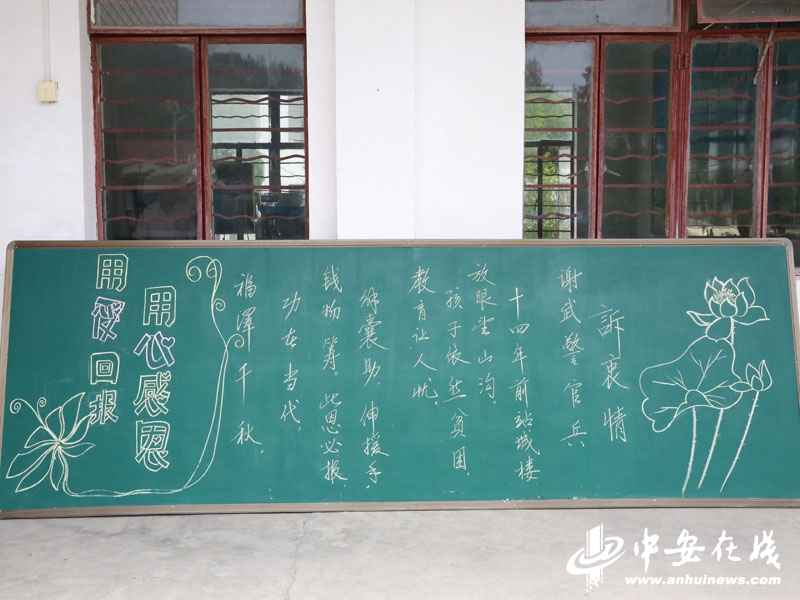 訴衷情
谢武警官兵
十四年前站城楼
放眼望山沟。
孩子依然贫困，
教育让人忧。
解囊助，伸援手，
钱物筹。此恩必报
功在当代，
福泽千秋。
用心感恩
用爱回报
中安在线
www.anhuinews.com